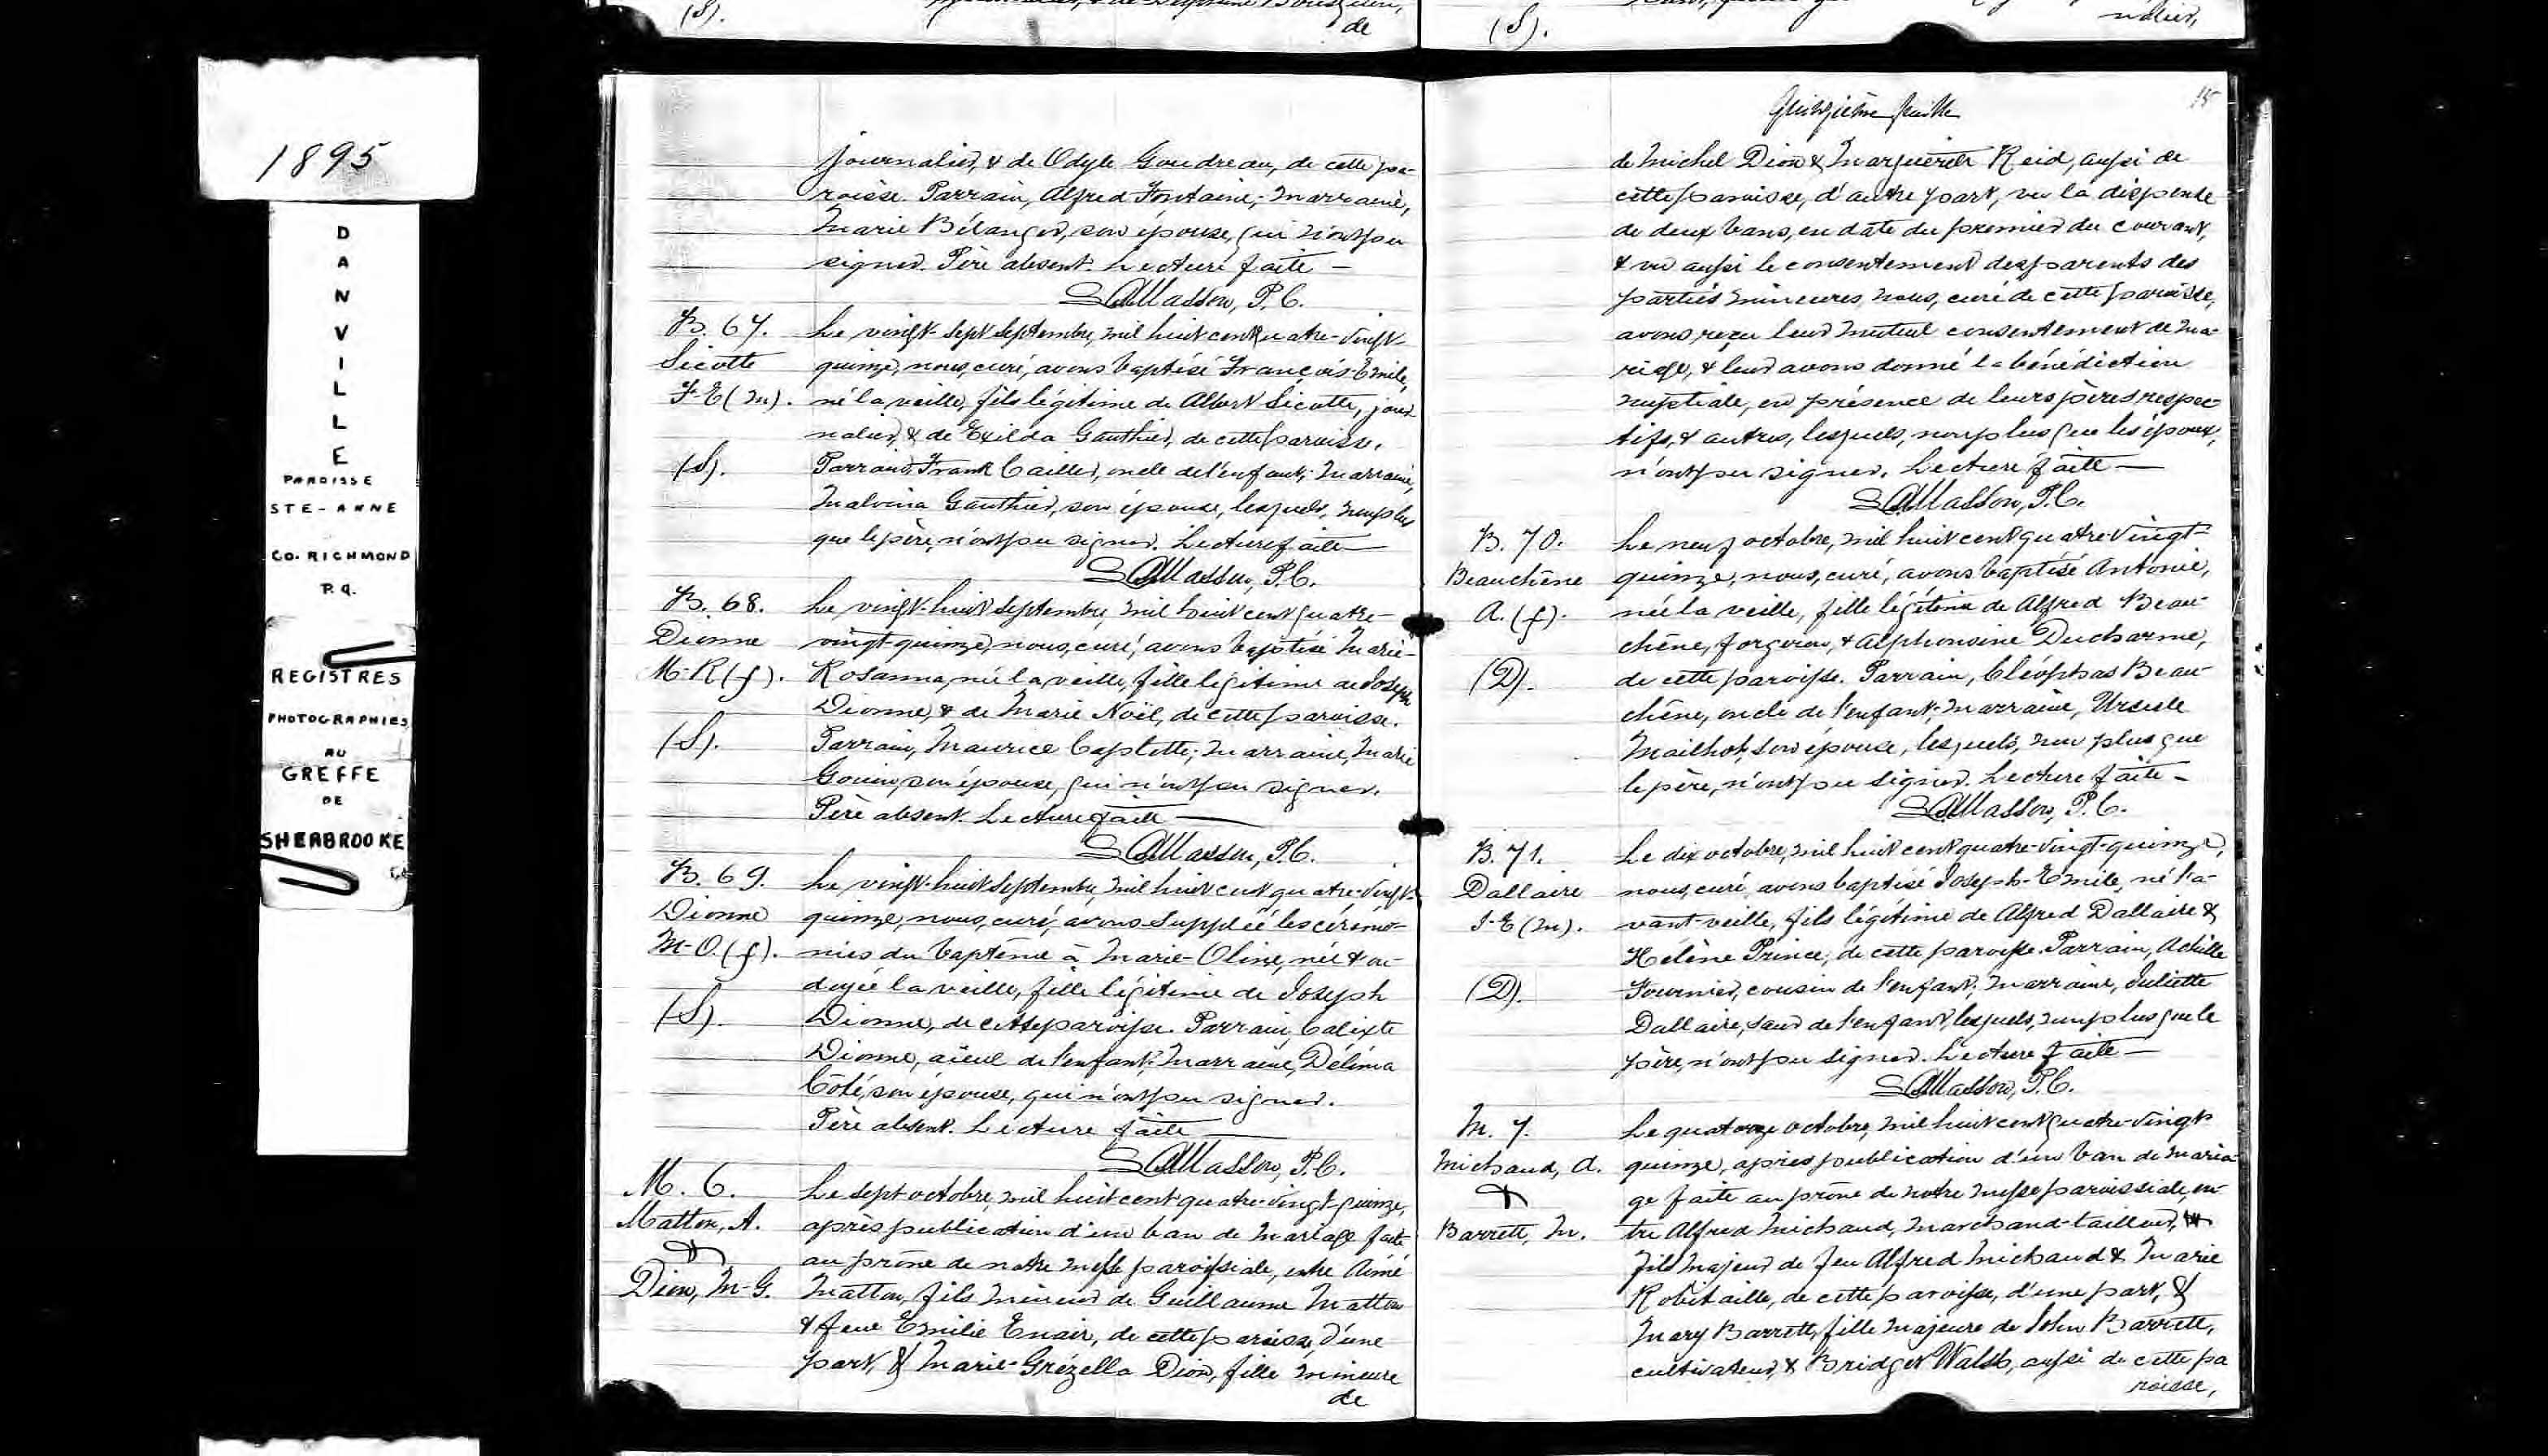 (S).
de
(S).
nalier,
1895
DANVILLE
PAROISSE
STE-ANNE
CO. RICHMOND
P.Q.
REGISTRES
PHOTOGRAPHIES
AU
GREFFE
DE
SHERBROOKE
journalier, & de Odyle Goudreau, de cette pa-
roisse. Parrain, Alfred Fontaine; marraine,
Marie Bélanger, son épouse, qui n'ont pu
signer. Père absent. Lecture faite —
Masson, P.C.
B. 67.
Sicotte
F-E (m).
(S).
Le vingt-sept septembre, mil huit cent quatre-vingt-
quinze, nous, curé, avons baptisé François-Emile,
né la veille, fils légitime de Albert Sicotte, jour-
nalier, & de Exilda Gauthier, de cette paroisse.
Parrain, Frank Cailler, oncle de l'enfant; marraine,
Malvina Gauthier, son épouse, lesquels, non plus
que le père, n'ont pu signer. Lecture faite —
Masson, P.C.
B. 68.
Dionne
M-R (f).
(S).
Le vingt-huit septembre, mil huit cent quatre-
vingt-quinze, nous, curé, avons baptisé Marie-
Rosanna, née la veille, fille légitime de Joseph
Dionne, & de Marie Noël, de cette paroisse.
Parrain, Maurice Caplette; marraine, Marie
Gouin, son épouse, qui n'ont pu signer.
Père absent. Lecture faite —
Masson, P.C.
B. 69.
Dionne
M-O. (f).
(S).
Le vingt-huit septembre, mil huit cent quatre-vingt-
quinze, nous, curé, avons suppléé les cérémo-
nies du baptême à Marie-Oline, née & on-
doyée la veille, fille légitime de Joseph
Dionne, de cette paroisse. Parrain, Calixte
Dionne, aïeul de l'enfant; marraine, Délima
Côté, son épouse, qui n'ont pu signer.
Père absent. Lecture faite —
Masson, P.C.
M. 6.
Matton, A.
&
Dion, M-G.
Le sept octobre, mil huit cent quatre-vingt-quinze,
après publication d'un ban de mariage faite
au prône de notre messe paroissiale, entre Aimé
Matton, fils mineur de Guillaume Matton
& feue Emilie Enair, de cette paroisse, d'une
part, & Marie-Grézella Dion, fille mineure
de
Quinzième feuille
15
de Michel Dion & Marguerite Reid, aussi de
cette paroisse, d'autre part, vu la dispense
de deux bans, en date du premier du courant,
& vu aussi le consentement des parents des
parties mineures, nous, curé de cette paroisse,
avons reçu leur mutuel consentement de ma-
riage, & leur avons donné la bénédiction
nuptiale, en présence de leurs pères respec-
tifs, & autres, lesquels, non plus que les époux,
n'ont pu signer. Lecture faite —
Masson, P.C.
B. 70.
Beauchêne
A. (f).
(D).
Le neuf octobre, mil huit cent quatre-vingt-
quinze, nous, curé, avons baptisé Antonie,
née la veille, fille légitime de Alfred Beau-
chêne, forgeron, & Alphonsine Ducharme,
de cette paroisse. Parrain, Cléophas Beau-
chêne, oncle de l'enfant; marraine, Ursule
Mailhot, son épouse, lesquels, non plus que
le père, n'ont pu signer. Lecture faite —
Masson, P.C.
B. 71.
Dallaire
J-E (m).
(D).
Le dix octobre, mil huit cent quatre-vingt-quinze,
nous, curé, avons baptisé Joseph-Emile, né l'a-
vant-veille, fils légitime de Alfred Dallaire &
Hélène Prince, de cette paroisse. Parrain, Achille
Fournier, cousin de l'enfant; marraine, Juliette
Dallaire, sœur de l'enfant, lesquels, non plus que le
père, n'ont pu signer. Lecture faite —
Masson, P.C.
M. 7.
Michaud, A.
&
Barrett, M.
Le quatorze octobre, mil huit cent quatre-vingt-
quinze, après publication d'un ban de maria-
ge faite au prône de notre messe paroissiale, en-
tre Alfred Michaud, marchand-tailleur,
fils majeur de feu Alfred Michaud & Marie
Robitaille, de cette paroisse, d'une part, &
Mary Barrett, fille majeure de John Barrett,
cultivateur, & Bridget Walsh, aussi de cette pa
roisse,